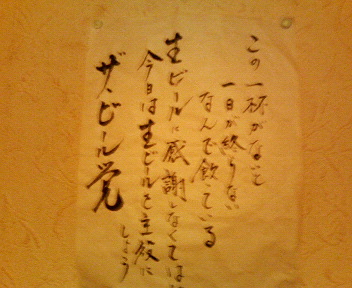 この一杯がないと
一日が終りない
なんで飲でいる
生ビールに感謝しなくては
今日は生ビールを主役に
しよう
ザ・ビール党